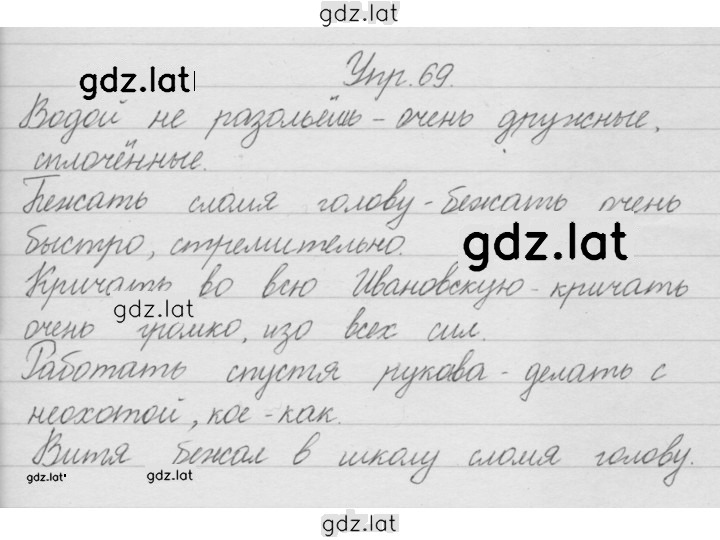 gdz.lat
gdz.lat
Упр. 69.
Водой не разольёшь - очень дружные,
сплочённые.
Бежать сломя голову - бежать очень
быстро, стремительно.
gdz.lat
Кричать во всю Ивановскую - кричать
gdz.lat
очень громко, изо всех сил.
Работать спустя рукава - делать с
неохотой, кое-как.
Витя бежал в школу сломя голову.
gdz.lat
gdz.lat
gdz.lat